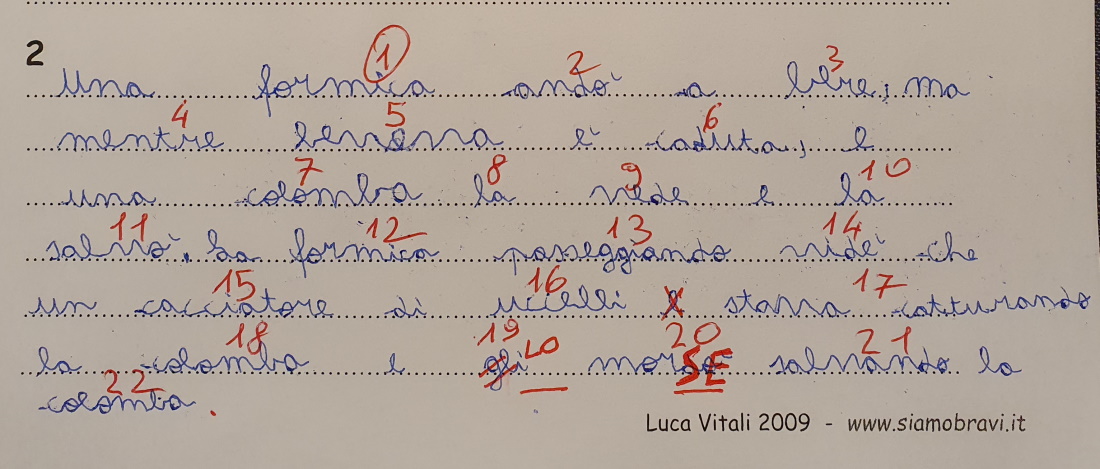 2
1 2 3
Una formica andò a bere, ma
4 5 6
mentre beveva è caduta, e
7 8 9 10
una colomba la vede e la
11 12 13 14
salvò. La formica passeggiando vide che
15 16 17
un cacciatore di uccelli stava catturando
18 19 LO 20 21
la colomba e gli morSE salvando la
22
colomba.
Luca Vitali 2009 - www.siamobravi.it